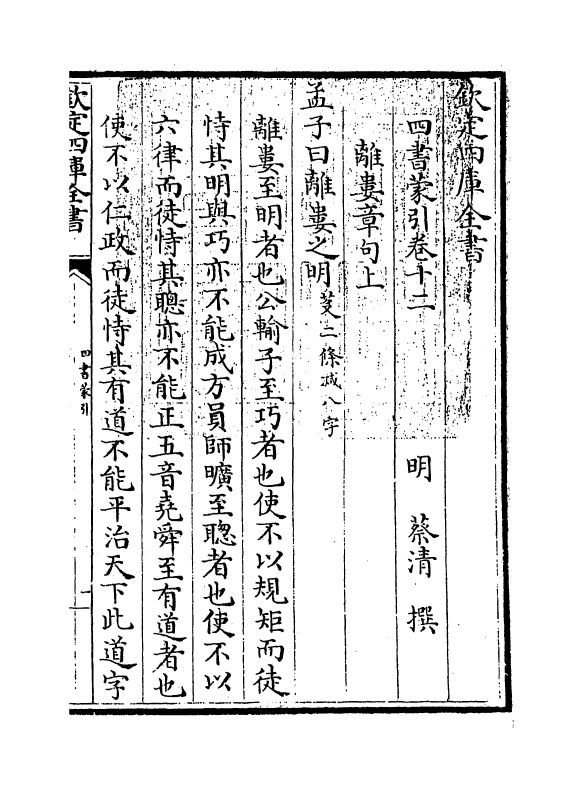 欽定四庫全書
四書蒙引卷十二
明 蔡清 撰
離婁章句上
孟子曰離婁之明芟二條减八字
離婁至明者也公輸子至巧者也使不以規矩而徒
恃其明與巧亦不能成方員師曠至聰者也使不以
六律而徒恃其聰亦不能正五音堯舜至有道者也
使不以仁政而徒恃其有道不能平治天下此道字
欽定四庫全書
四書蒙引
一